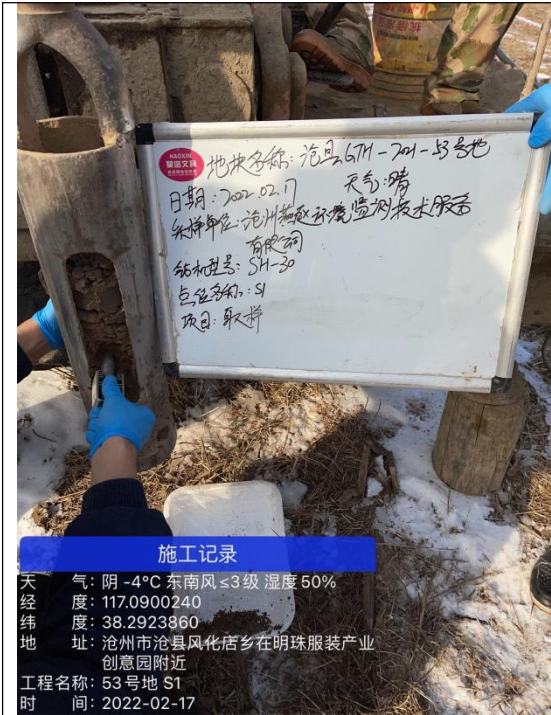 HAOXIN
地块名称:沧县GTH-2021-53号地
日期:2022.02.17 天气:晴
采样单位:沧州燕赵环境监测技术服务
有限公司
钻机型号:SH-30
点位名称:S1
项目:取样
施工记录
天 气:阴 -4°C 东南风≤3级 湿度50%
经 度:117.0900240
纬 度:38.2923860
地 址:沧州市沧县风化店乡在明珠服装产业
创意园附近
工程名称:53号地 S1
时 间:2022-02-17